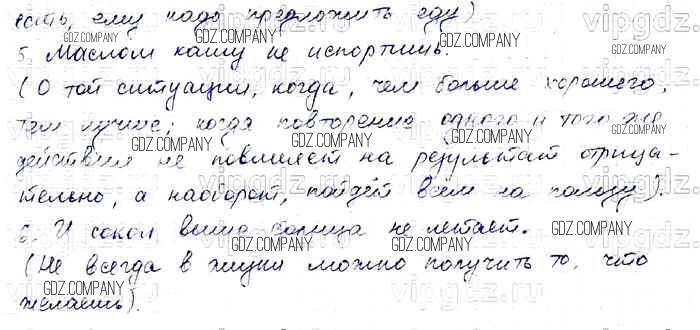 есть, ему надо предложить еду)
5. Маслом кашу не испортишь.
(О той ситуации, когда, чем больше хорошего,
тем лучше; когда повторение одного и того же
действия не повлияет на результат отрица-
тельно, а наоборот, пойдёт всем на пользу).
6. И сокол выше солнца не летает.
(Не всегда в жизни можно получить то, что
желаешь).